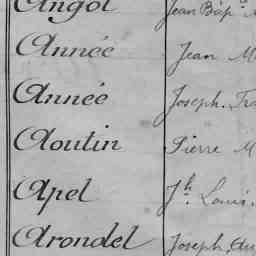 Angot Jean Bap.
Année Jean M
Année Joseph. Fra
Aoutin Pierre M
Apel Jh. Louis.
Arondel Joseph, Au